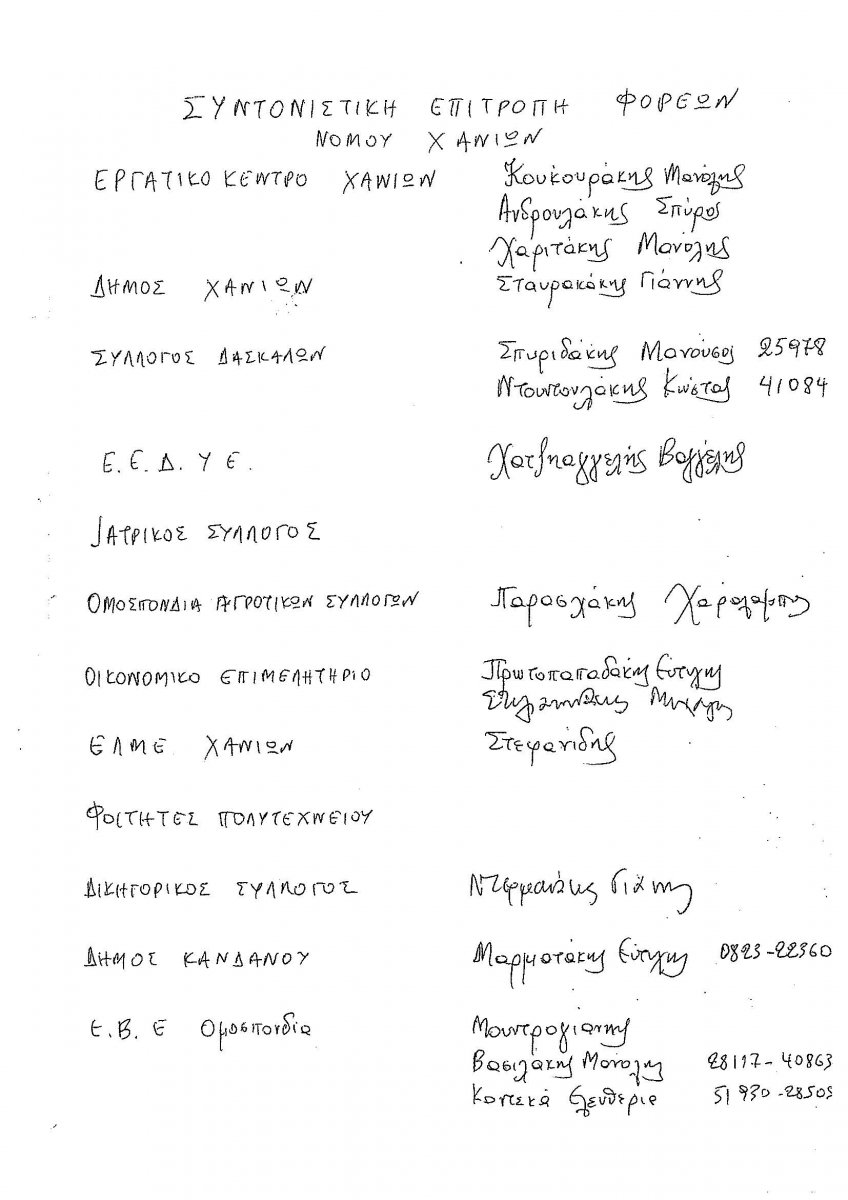 ΣΥΝΤΟΝΙΣΤΙΚΗ ΕΠΙΤΡΟΠΗ ΦΟΡΕΩΝ
ΝΟΜΟΥ ΧΑΝΙΩΝ
ΕΡΓΑΤΙΚΟ ΚΕΝΤΡΟ ΧΑΝΙΩΝ Κουκουράκης Μανόλης
Ανδρουλάκης Σπύρος
Χαριτάκης Μανόλης
ΔΗΜΟΣ ΧΑΝΙΩΝ Σταυρακάκης Γιάννης
ΣΥΛΛΟΓΟΣ ΔΑΣΚΑΛΩΝ Σπυριδάκης Μανούσος 25978
Ντουντουλάκης Κώστας 41084
Ε.Ε.Δ.Υ Ε. Χατζηαγγελής Βαγγέλης
ΙΑΤΡΙΚΟΣ ΣΥΛΛΟΓΟΣ
ΟΜΟΣΠΟΝΔΙΑ ΑΓΡΟΤΙΚΩΝ ΣΥΛΛΟΓΩΝ Παρασχάκης Χαράλαμπος
ΟΙΚΟΝΟΜΙΚΟ ΕΠΙΜΕΛΗΤΗΡΙΟ Πρωτοπαπαδάκης Ευτύχης
ΕΛΜΕ ΧΑΝΙΩΝ Στεφανίδης
ΦΟΙΤΗΤΕΣ ΠΟΛΥΤΕΧΝΕΙΟΥ
ΔΙΚΗΓΟΡΙΚΟΣ ΣΥΛΛΟΓΟΣ Ντερμανάκης Γιάννης
ΔΗΜΟΣ ΚΑΝΔΑΝΟΥ Μαρματάκης Ευτύχης 0823-22360
Ε.Β.Ε Ομοσπονδία Μουντρογιαννης
Βασιλάκης Μανόλης 28117-40863
Ελευθερία 51930-28505